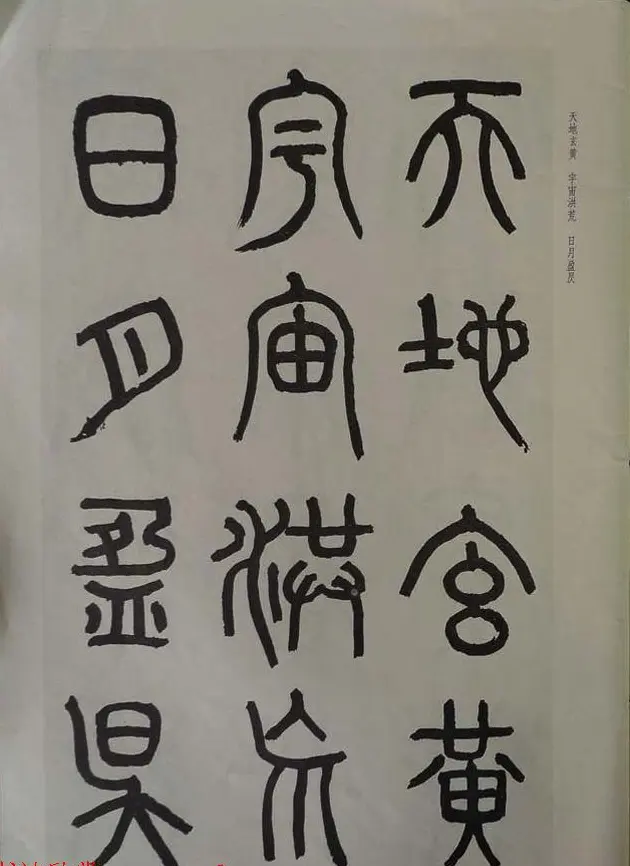 天地玄黄 宇宙洪荒 日月盈昃
天地玄黃
宇宙洪荒
日月盈昃